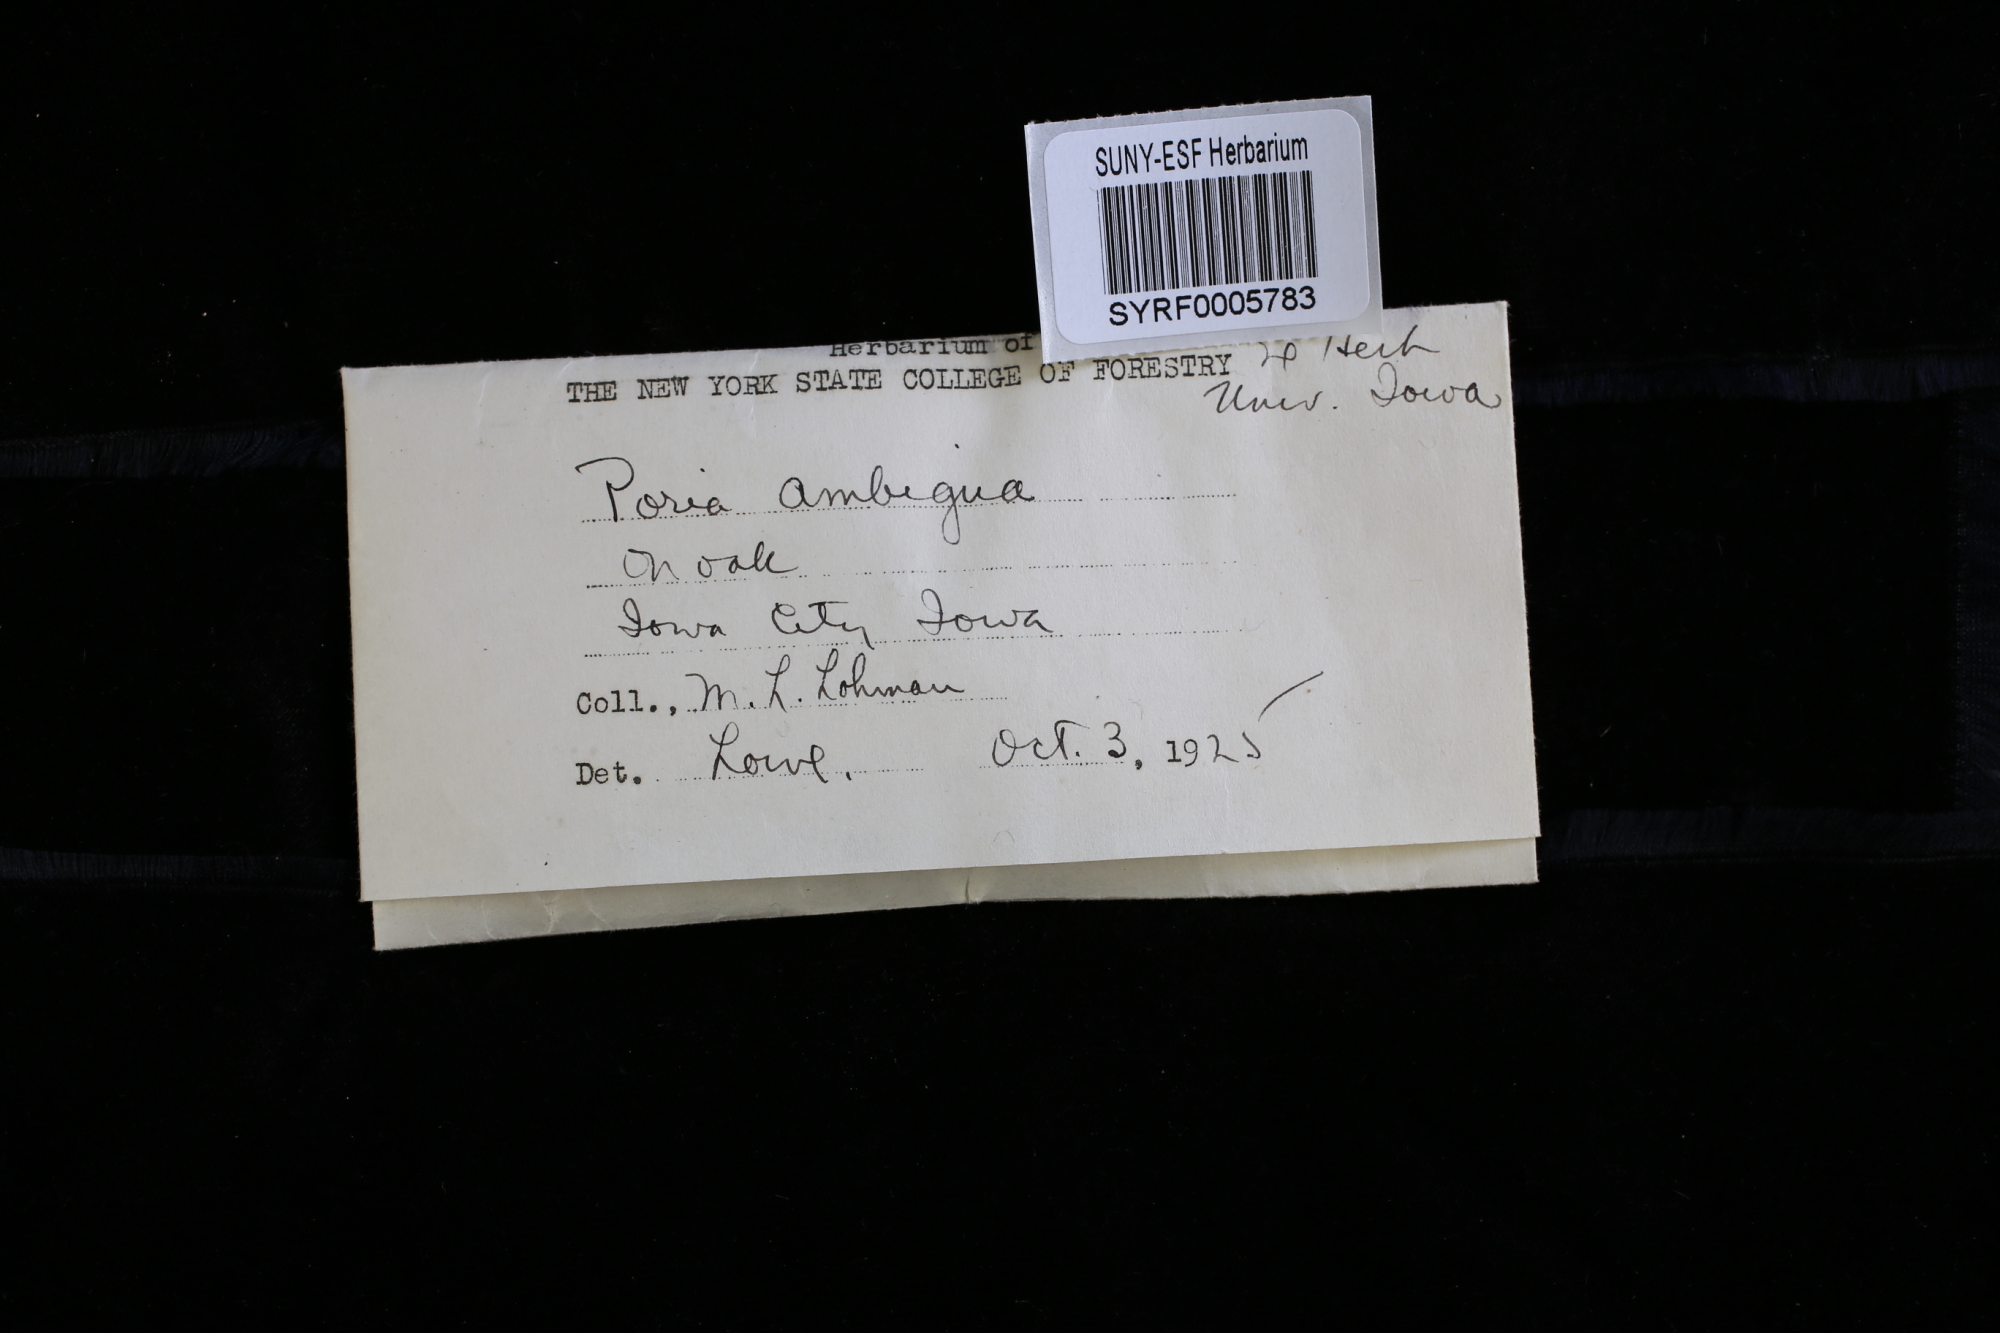 SUNY-ESF Herbarium
SYRF0005783
Herbarium of
THE NEW YORK STATE COLLEGE OF FORESTRY
Herb
Univ. Iowa
Poria ambigua
On oak
Iowa City Iowa
Coll., M. L. Lohman
Det. Lowe. Oct. 3, 1925